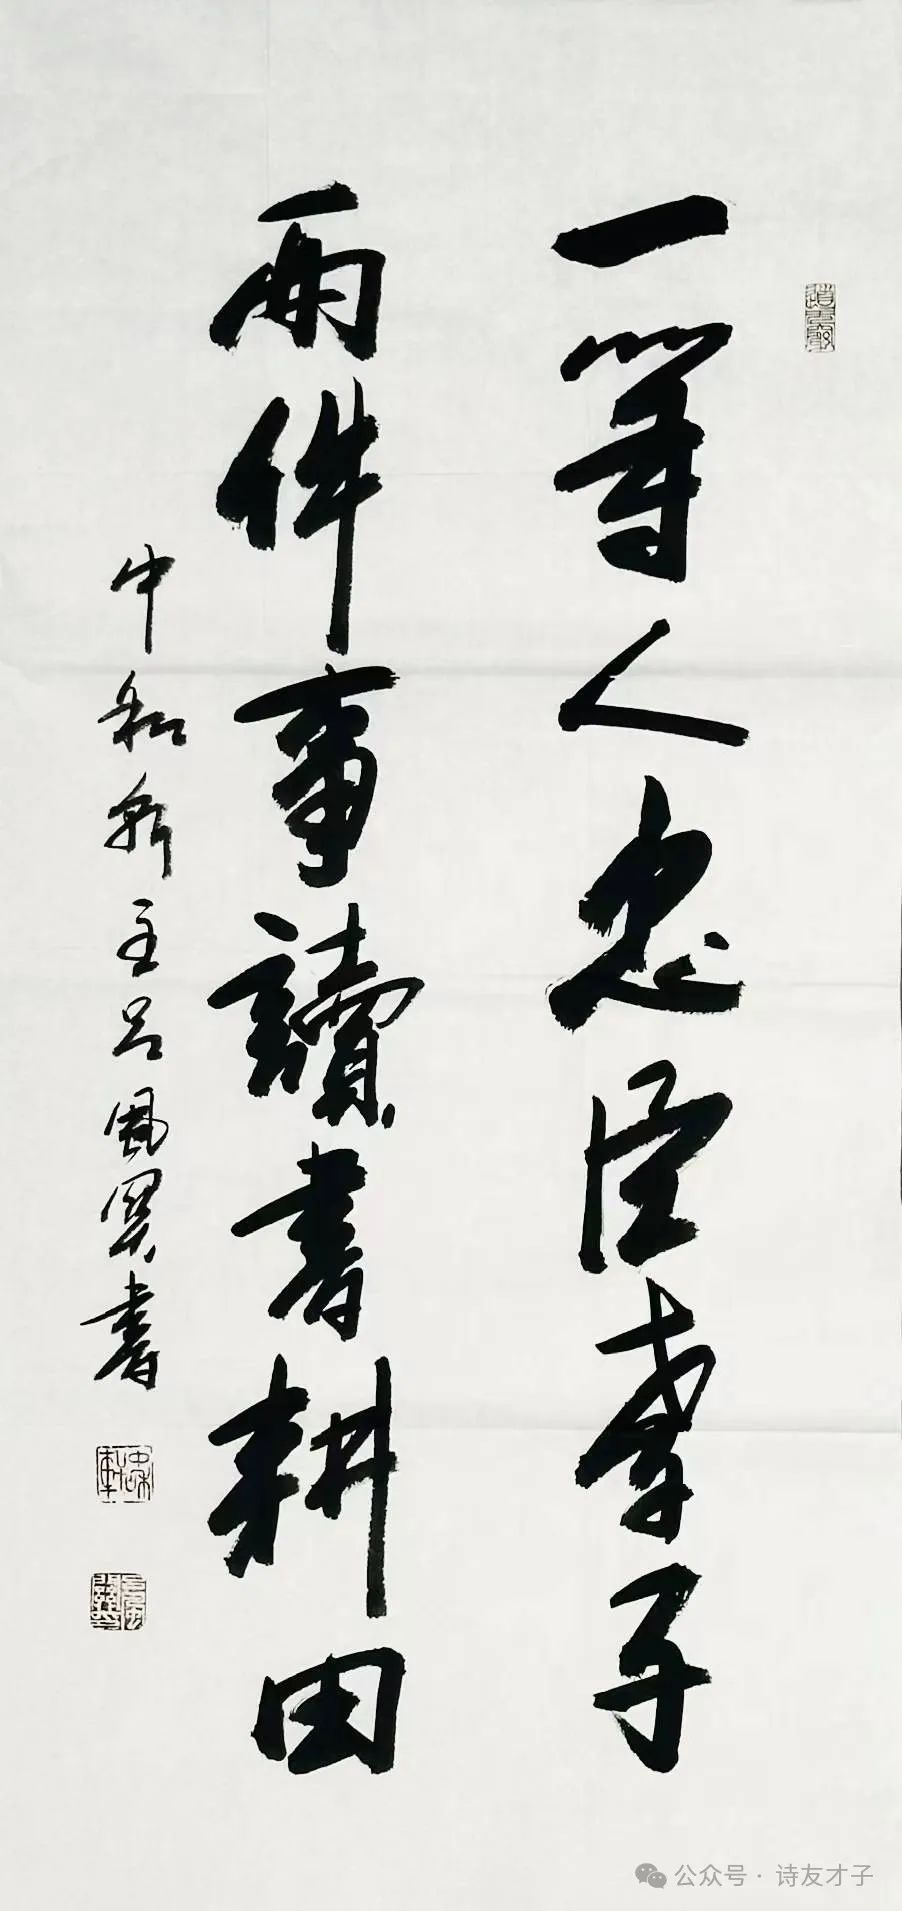 一等人忠臣孝子
兩件事讀書耕田
中和軒主呂風巽書
公众号 · 诗友才子